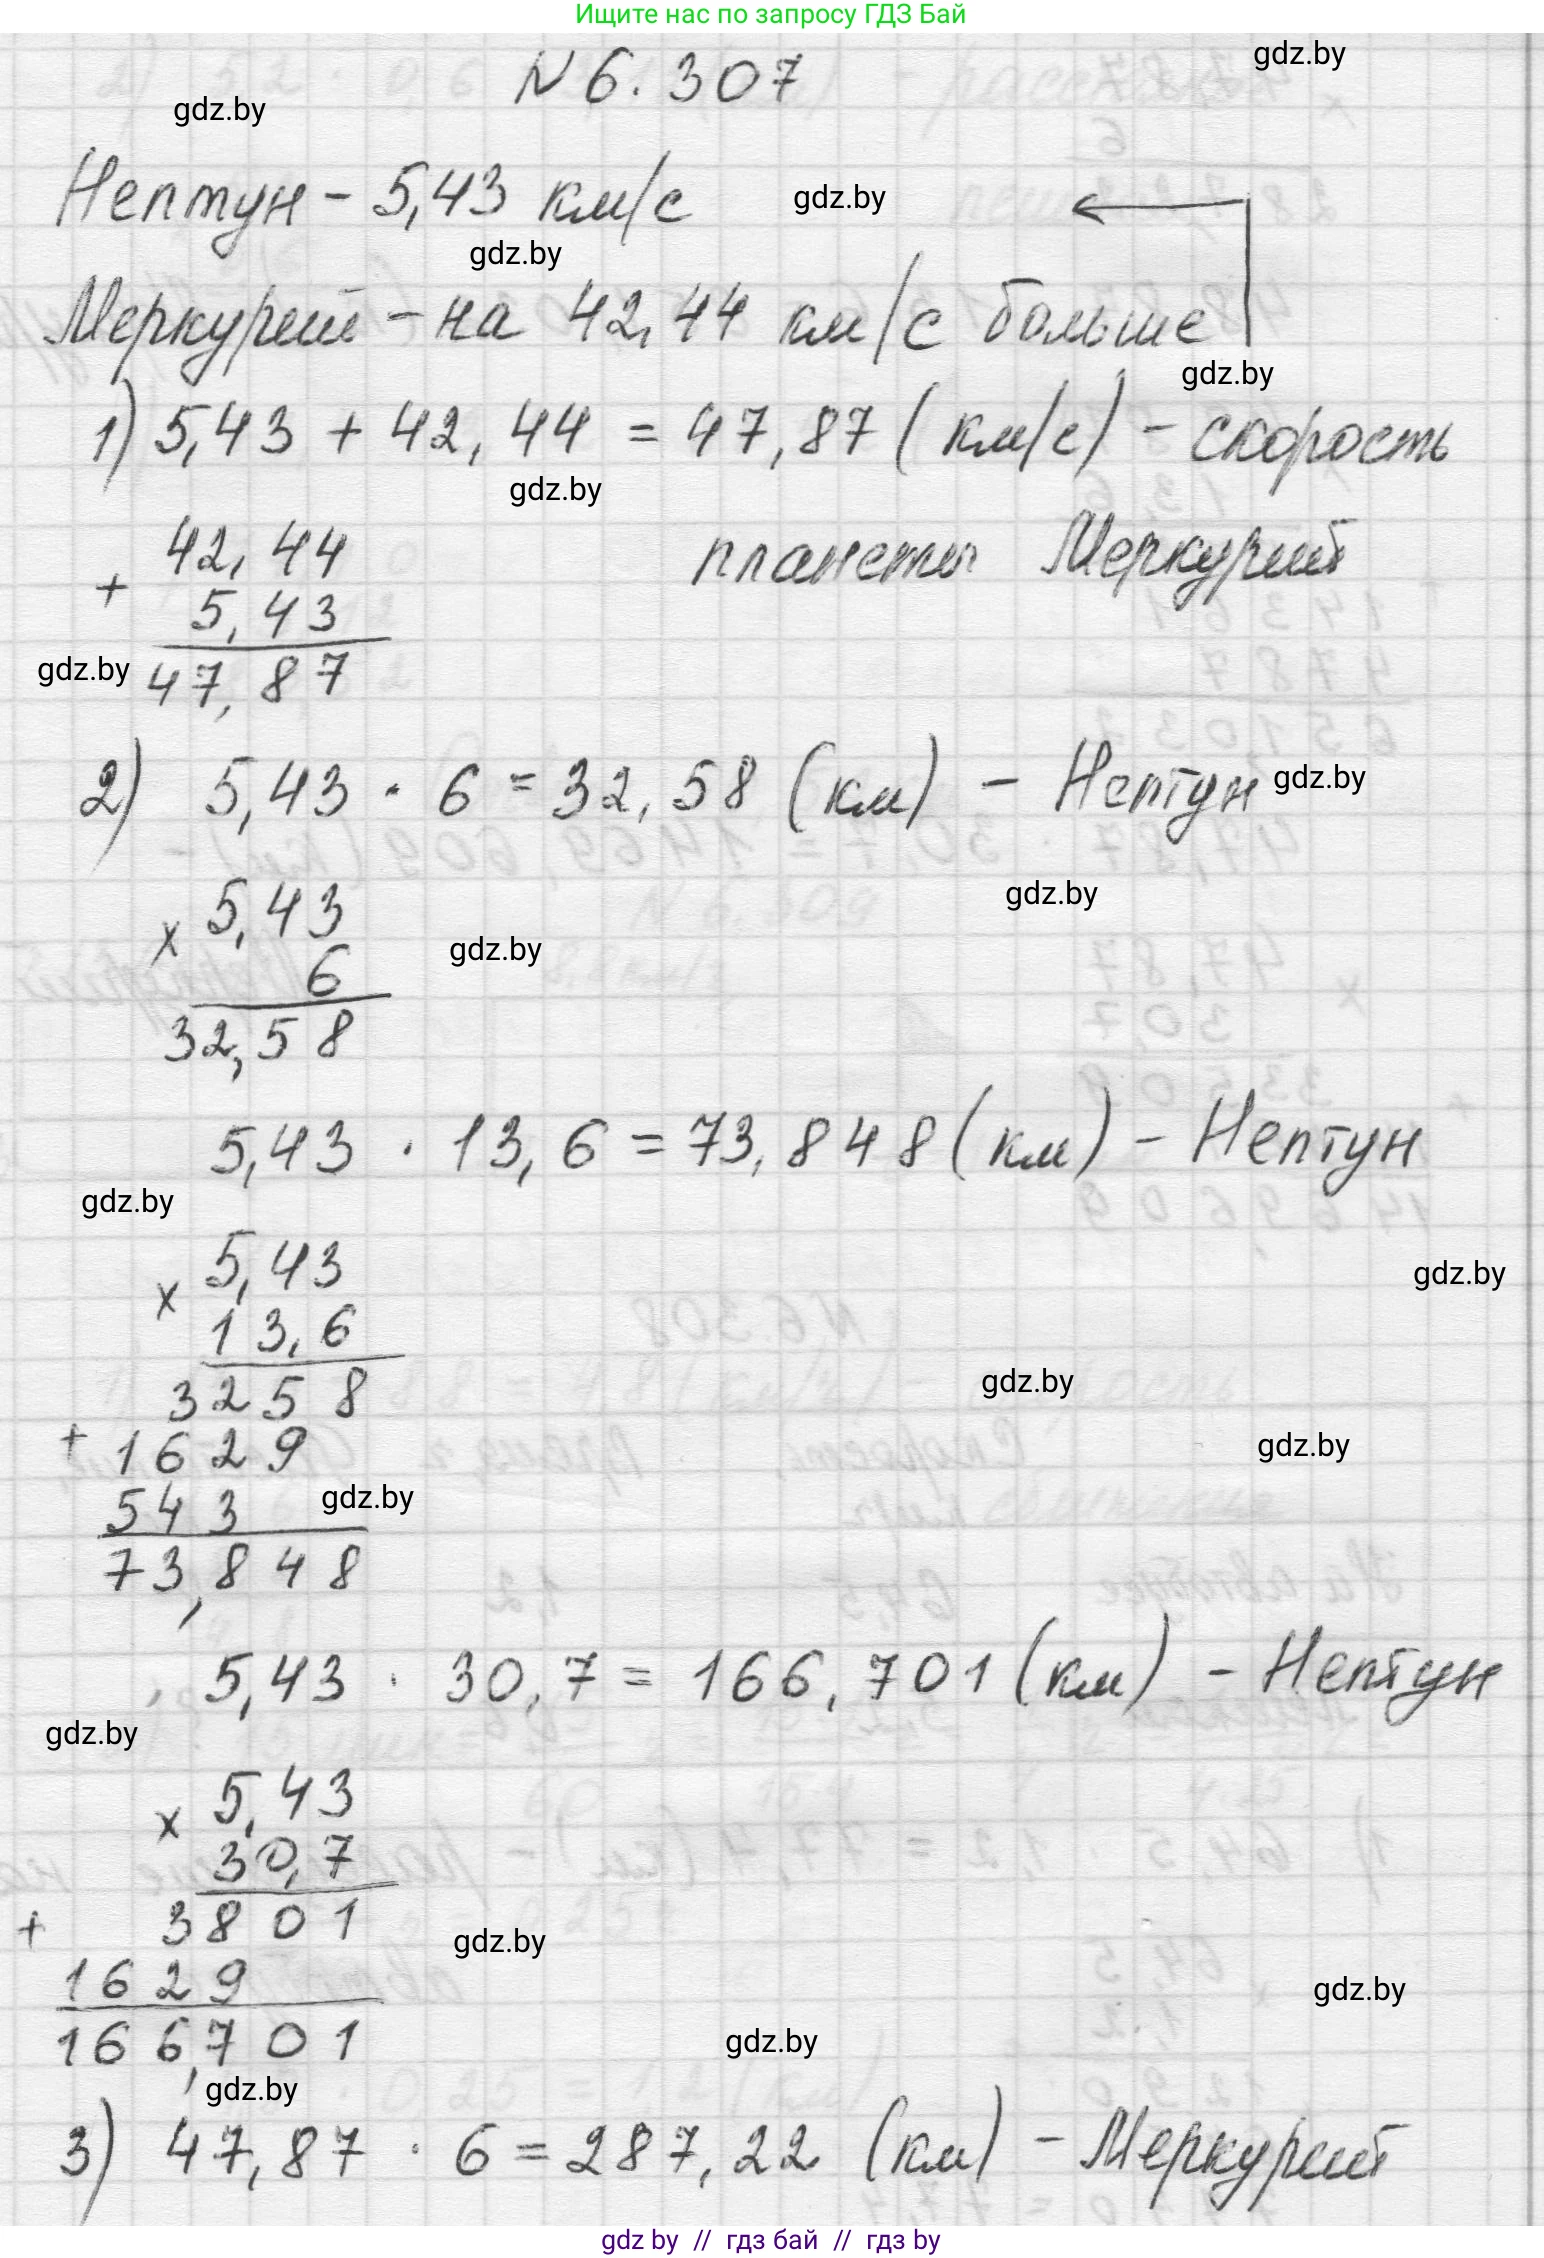 Ищите нас по запросу ГДЗ Бай
gdz.by
N 6.307
gdz.by
Нептун - 5,43 км/с
gdz.by
gdz.by
Меркурий - на 42,44 км/с больше
gdz.by
1) 5,43 + 42,44 = 47,87 (км/с) - скорость
gdz.by
планеты Меркурий
42,44
+
5,43
gdz.by
47,87
2) 5,43 · 6 = 32,58 (км) - Нептун
gdz.by
gdz.by
5,43
x
gdz.by
6
32,58
5,43 · 13,6 = 73,848 (км) - Нептун
gdz.by
5,43
gdz.by
x
13,6
gdz.by
3258
+ 1629
gdz.by
543
gdz.by
73,848
5,43 · 30,7 = 166,701 (км) - Нептун
gdz.by
5,43
x
30,7
+ 3801
gdz.by
1629
gdz.by
166,701
gdz.by
gdz.by
3) 47,87 · 6 = 287,22 (км) - Меркурий
gdz by // гдз бай // гдз by